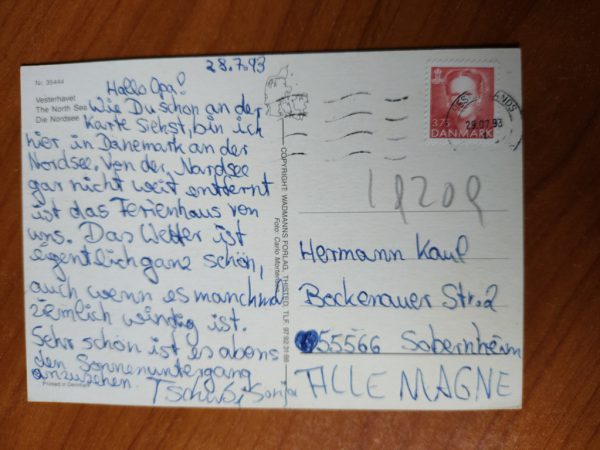 28.7.93
Nr. 35444
Vesterhavet
The North Sea
Die Nordsee
Hallo Opa!
Wie Du schon an der
Karte siehst, bin ich
hier in Dänemark an der
Nordsee. Von der Nordsee
gar nicht weit entfernt
ist das Ferienhaus von
uns. Das Wetter ist
eigentlich ganz schön,
auch wenn es manchmal
ziemlich windig ist.
Sehr schön ist es abens
den Sonnenuntergang
anzusehen.
Tschüß, Sonja
Printed in Denmark
COPYRIGHT: WADMANNS FORLAG, THISTED, TLF. 97 92 31 88
Foto: Carlo Mortensen
3.75
DANMARK
29.07.93
Hermann Kaul
Beckenauer Str. 2
55566 Sobernheim
ALLEMAGNE